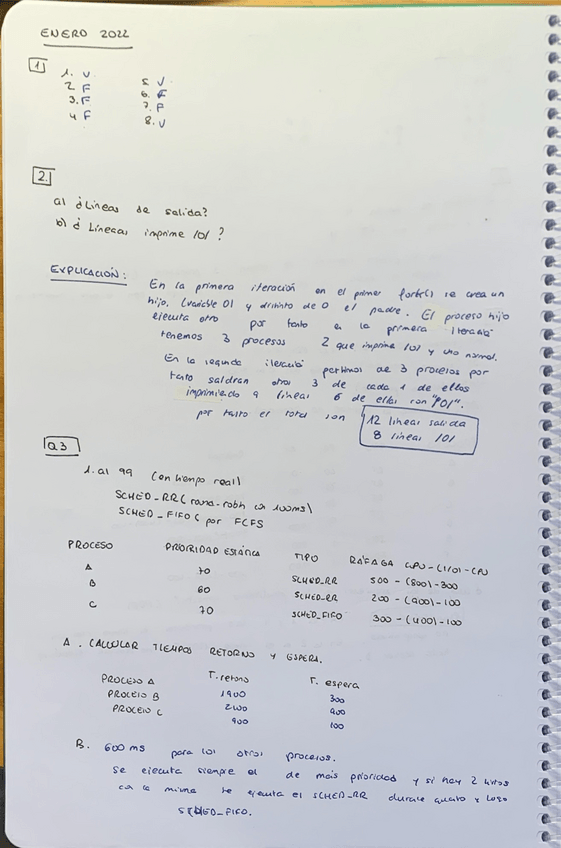 ENERO 2022
1
1. V
2 F
3. F
4 F
5 V
6. F
7. F
8. V
2.
a) ¿Líneas de salida?
b) ¿ Líneas imprime 101 ?
EXPLICACIÓN:
En la primera iteración en el primer fork() se crea un
hijo. (variable 0) y distinto de 0 el padre. El proceso hijo
ejecuta otro por tanto en la primera iteración
tenemos 3 procesos 2 que imprime 101 y uno normal.
En la segunda iteración partimos de 3 procesos por
tanto saldrán otros 3 de cada 1 de ellos
imprimiendo 9 líneas 6 de ellos con "101".
por tanto el total son
12 líneas salida
8 líneas 101
Q3
1. al 99 (en tiempo real)
SCHED_RR (round-robin con 100ms)
SCHED_FIFO ( por FCFS
PROCESO PRIORIDAD ESTÁTICA TIPO RÁFAGA CPU-(I/O)-CPU
A 70 SCHED_RR 500 - (800) - 300
B 60 SCHED_RR 200 - (900) - 100
C 70 SCHED_FIFO 300 - (400) - 100
A. CALCULAR TIEMPOS RETORNO Y ESPERA.
T. retorno T. espera
PROCESO A 1900 300
PROCESO B 2100 900
PROCESO C 900 100
B. 600 ms para los otros procesos.
Se ejecuta siempre el de más prioridad y si hay 2 listos
con la misma se ejecuta el SCHED_RR durante quanto y luego
SCHED_FIFO.